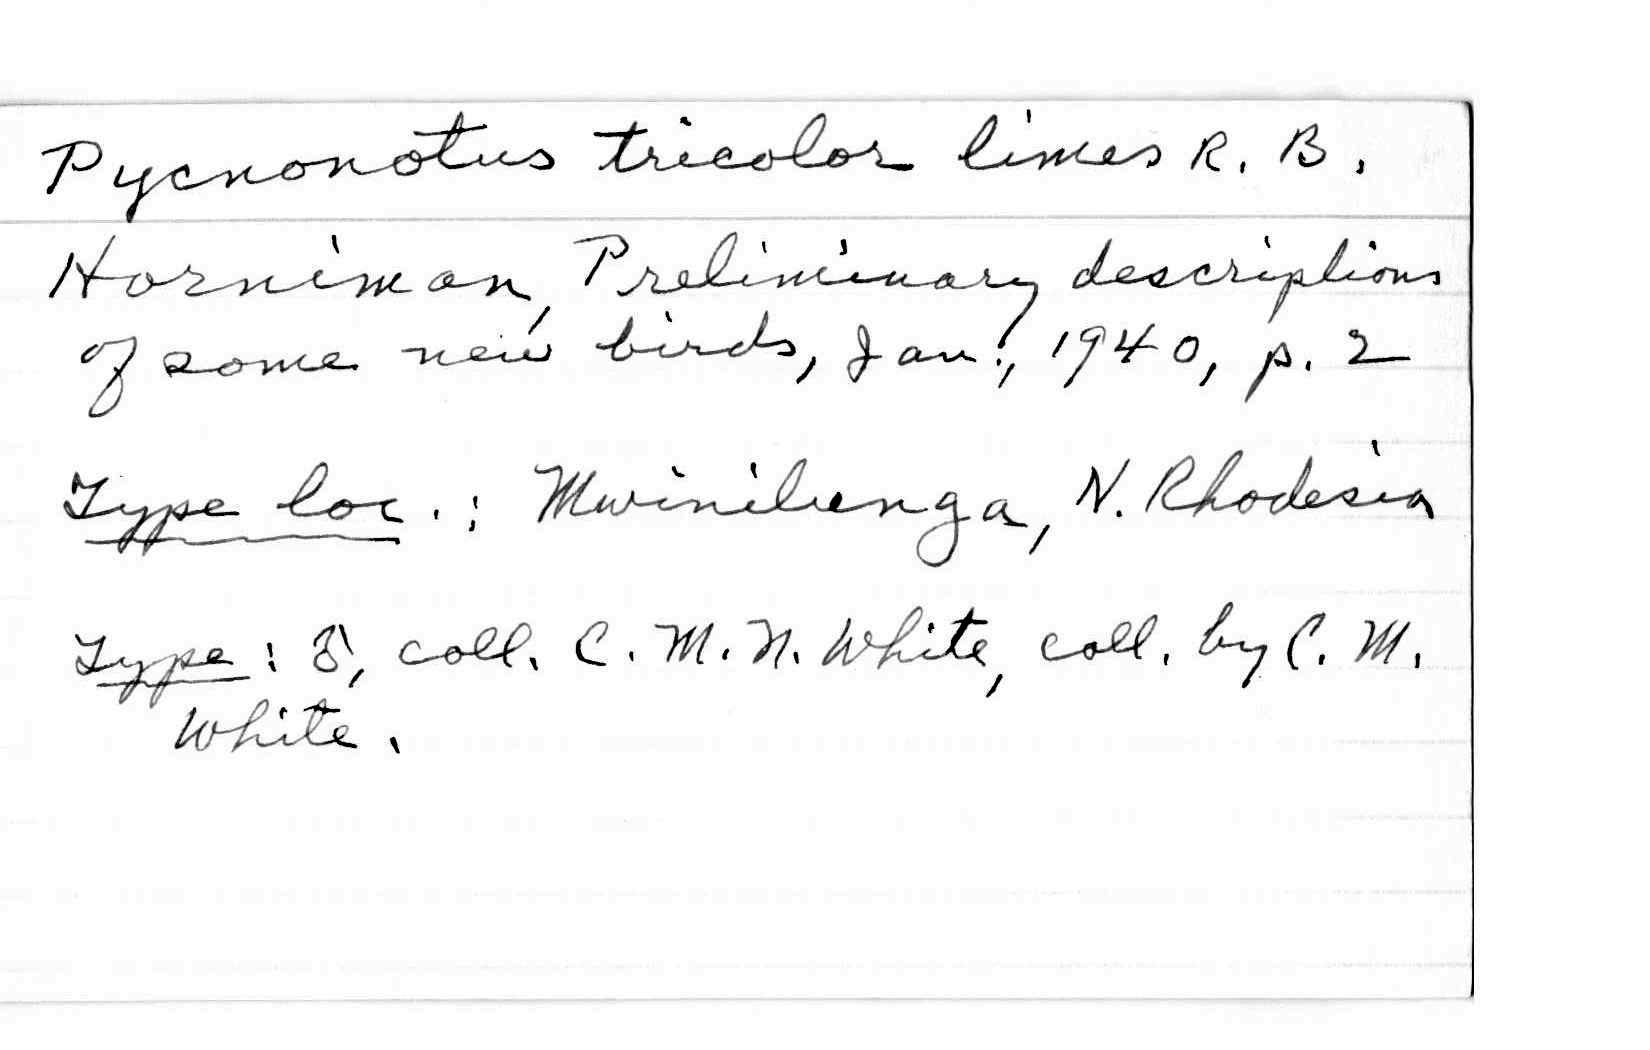 Pycnonotus tricolor limes R. B.
Horniman, Preliminary descriptions
of some new birds, Jan., 1940, p. 2
Type loc.: Mwinilunga, N. Rhodesia
Type: ♂, coll. C. M. N. White, coll. by C. M.
White.